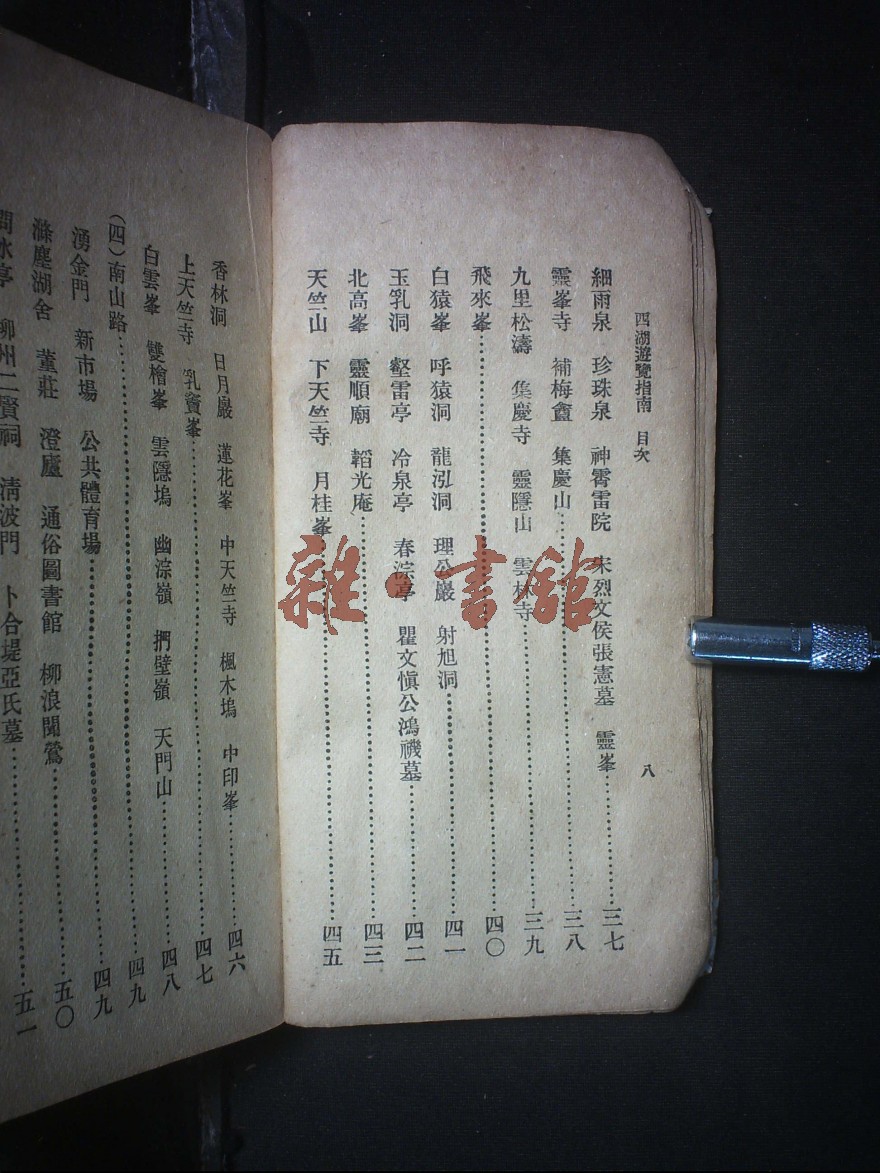 西湖遊覽指南 目次 八
細雨泉 珍珠泉 神霄雷院 宋烈文侯張憲墓 靈峯 三七
靈峯寺 補梅盦 集慶山 三八
九里松濤 集慶寺 靈隱山 雲林寺 三九
飛來峯 四〇
白猿峯 呼猿洞 龍泓洞 理公巖 射旭洞 四一
玉乳洞 壑雷亭 冷泉亭 春淙亭 瞿文愼公鴻禨墓 四二
北高峯 靈順廟 韜光庵 四三
天竺山 下天竺寺 月桂峯 四五
香林洞 日月巖 蓮花峯 中天竺寺 楓木塢 中印峯 四六
上天竺寺 乳竇峯 四七
白雲峯 雙檜峯 雲隱塢 幽淙嶺 捫壁嶺 天門山 四八
(四)南山路 四九
湧金門 新市場 公共體育場 四九
滌塵湖舍 董莊 澄廬 通俗圖書館 柳浪聞鶯 五〇
問水亭 柳州二賢祠 淸波門 卜合堤亞氏墓 五一
雜·書館